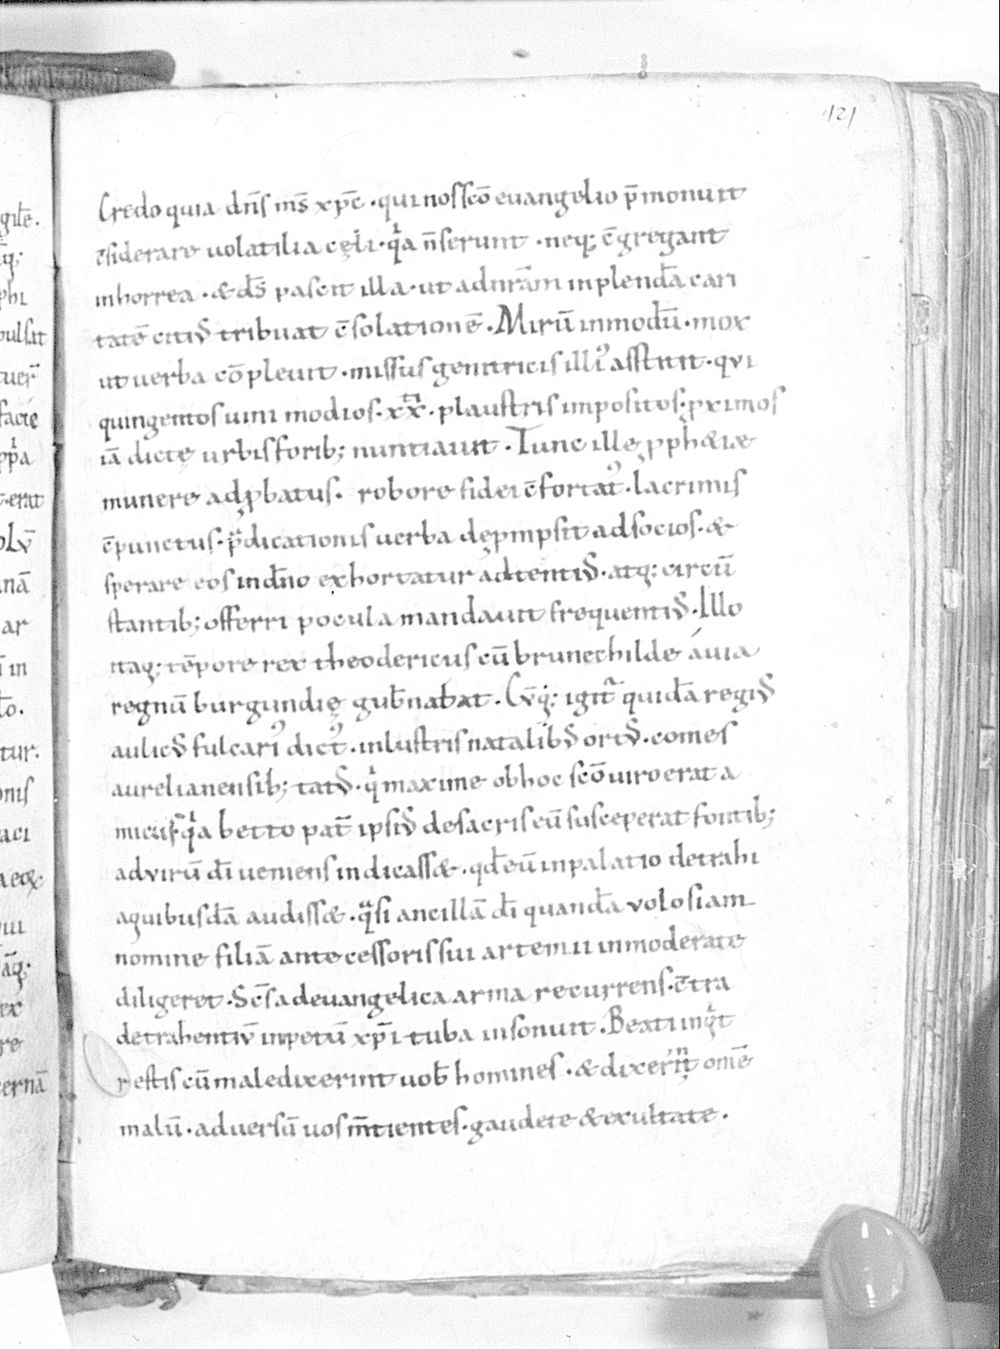 121
Credo quia dn̄s ms̄ xp̄c · qui nos sc̄o euangelio p̄monuit
c̄siderare uolatilia cęli · qa n̄ serunt · neq; c̄gregant
in horrea · & ds̄ pascit illa · ut ad nr̄am inplendā cari
tatē citius tribuat c̄solationē · Mirū inmodū · mox
ut uerba cōpleuit · missus genitricis illi᾽ asstitit · qui
quingentos uini modios · xx · plaustris impositos · ꝓximos
iā dictę urbis forib; nuntiauit · Tunc ille ꝓph&iæ
munere adꝓbatus · robore fidei c̄fortat᾽ · lacrimis
c̄punctus · p̄dicationis uerba depmpsit ad socios · &
sperare eos in dn̄o exhortatur adtentius · atq; circū
stantib; offerri pocula mandauit frequentius · Illo
itaq; tēpore rex theodericus cū brunechilde áuia
regnū burgundię gub̄nabat · Cūq; igit̄ quidā regis
aulicus fulcari᾽ dict᾽ · inlustris natalibus ortus · comes
aurelianensib; tatus · q maxime ob hoc sc̄o uiro erat a
micus · qa betto pat̄ ipsius de sacris eū susceperat fontib;
ad virū dī ueniens indicass& · qd̄ eū in palatio detrahi
a quibusdā audiss& · qsi ancillā dī quandā uolosiam
nomine filiā antecessoris sui artemii inmoderate
diligeret · Sc̄s ad euangelica arma recurrens · c̄tra
detrahentiū inpetū xp̄i tuba insonuit · Beati inqt
estis cū maledixerint uob̄ homines · & dixerint om̄e
malū · aduersū uos m̄tientes · gaudete & exultate ·